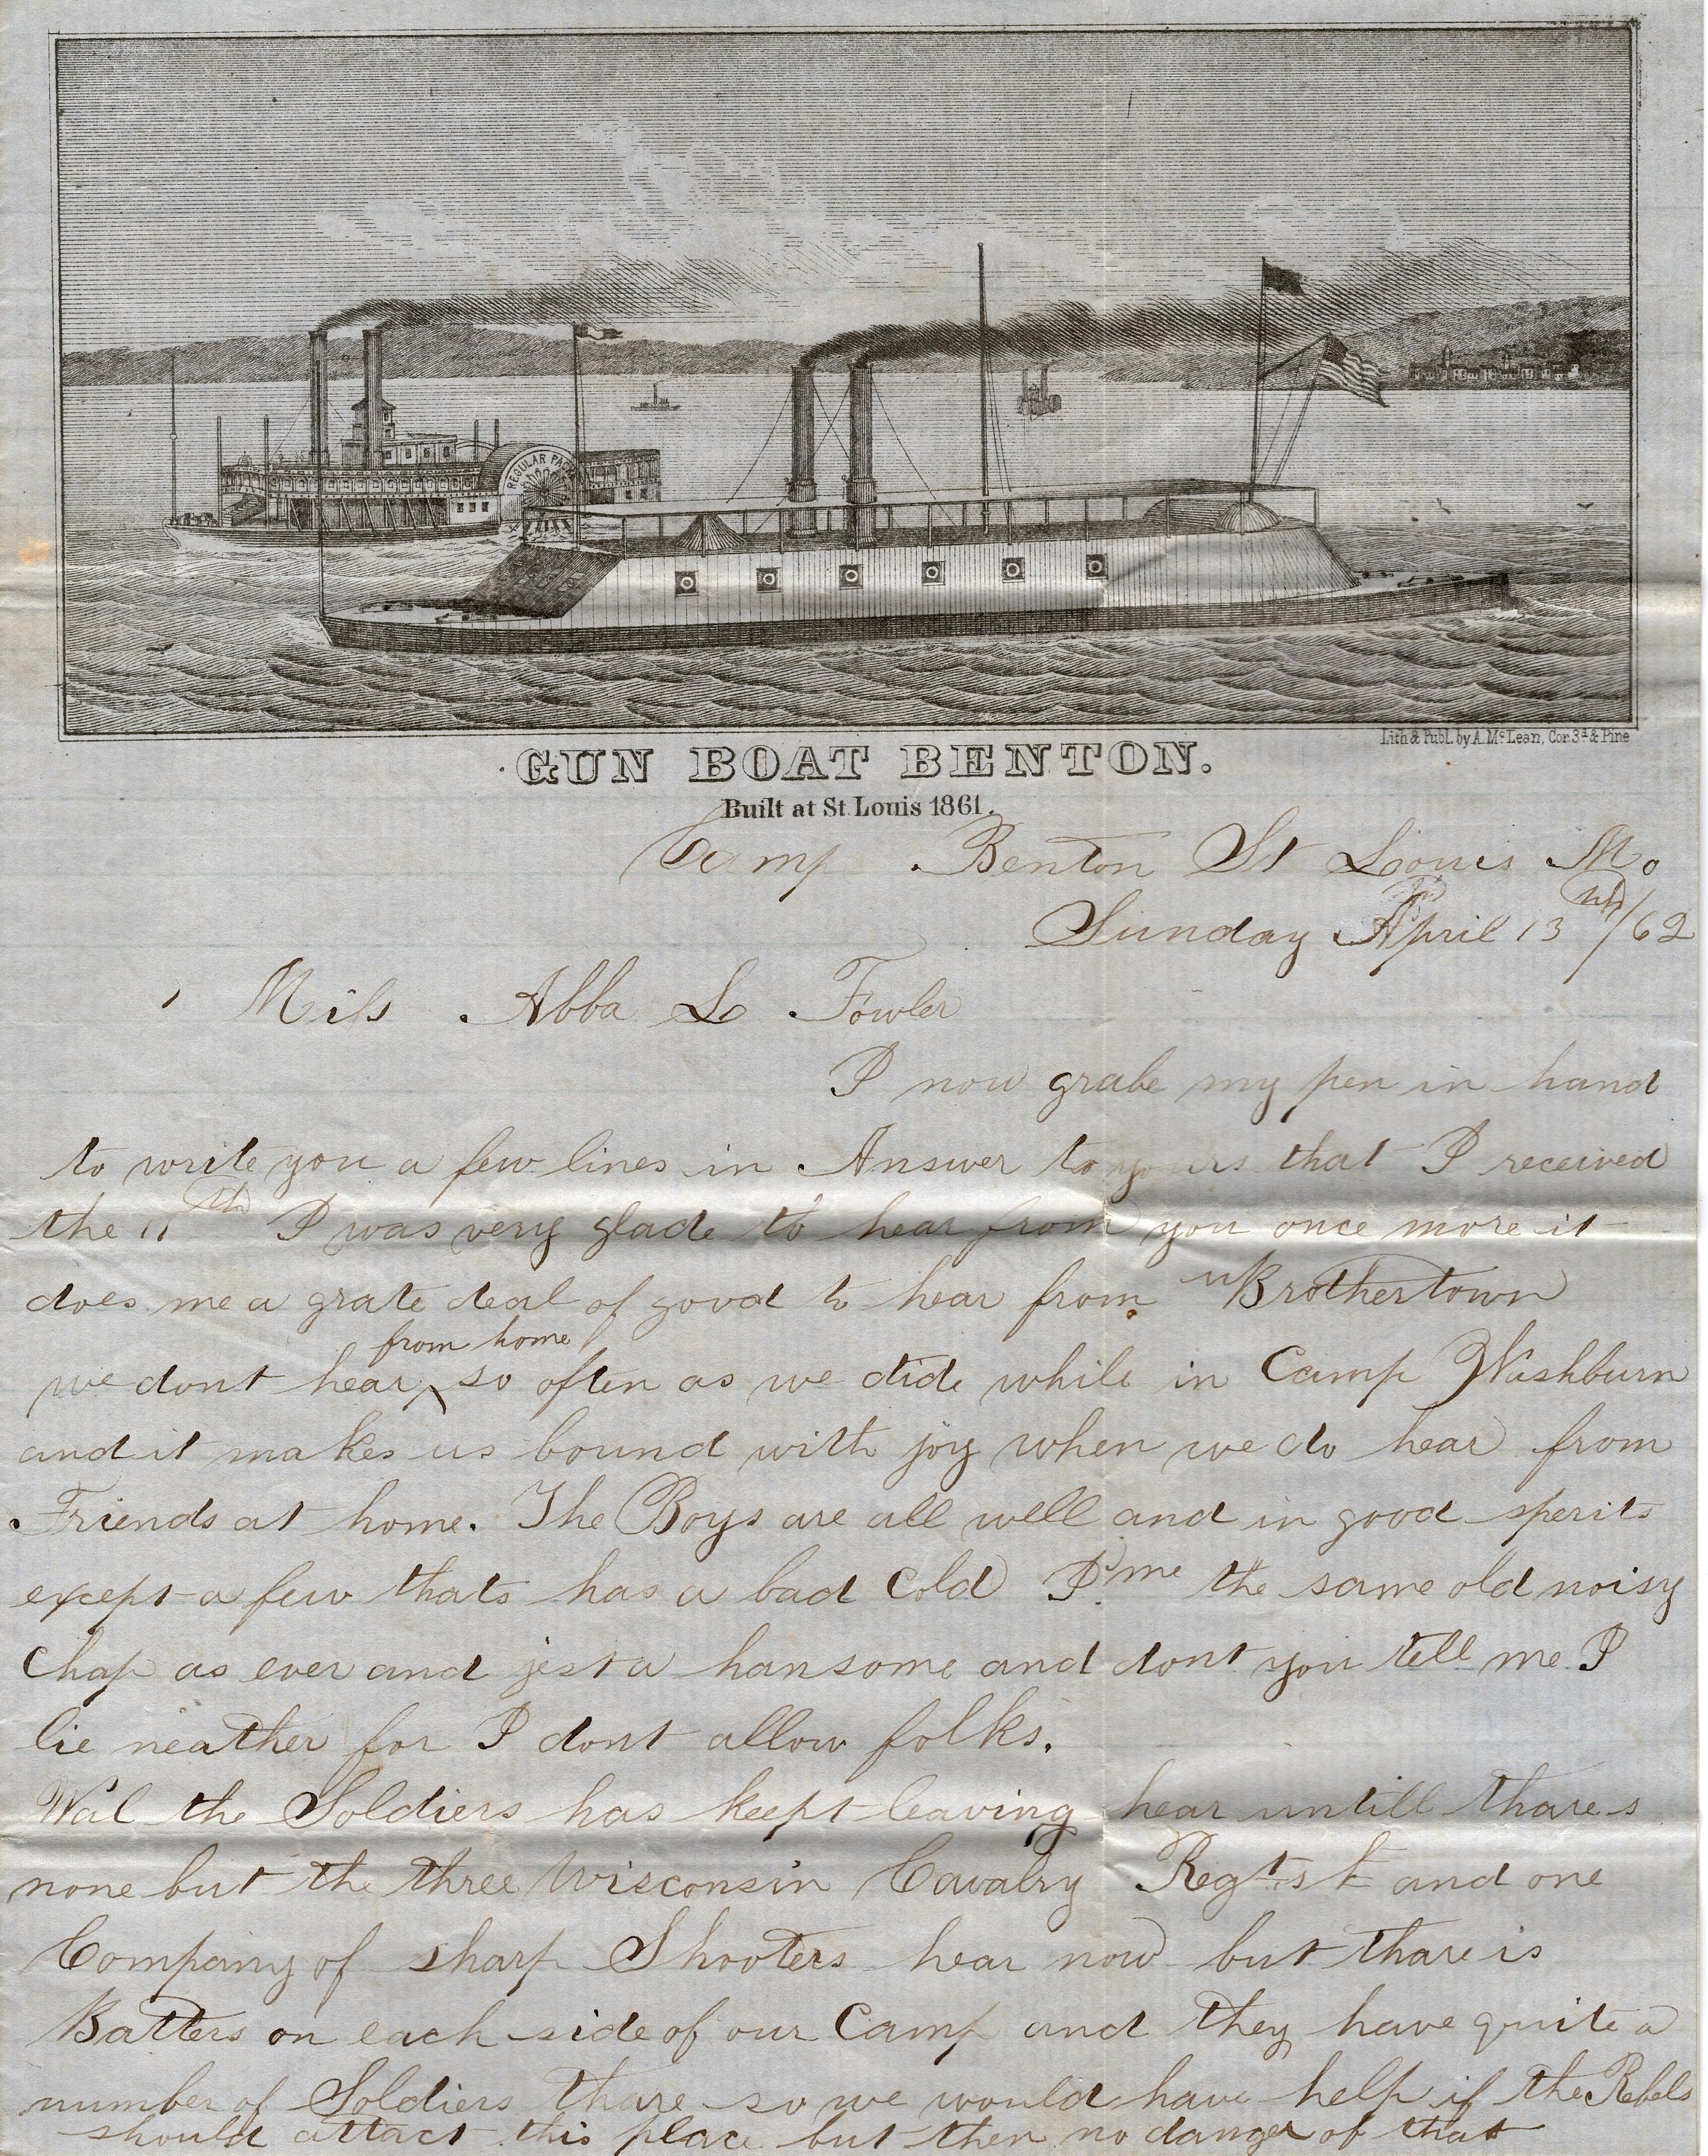 REGULAR PACK
Lith & Publ. by A. McLean, Cor 3d & Pine
GUN BOAT BENTON.
Built at St Louis 1861.
Camp Benton St Louis Mo
Sunday April 13th/62
Miss Abba L Fowler
I now grabe my pen in hand
to write you a few lines in Answer to yours that I received
the 11th I was very glade to hear from you once more it
does me a grate deal of good to hear from Brothertown
from home
we dont hear so often as we dide while in Camp Washburn
and it makes us bound with joy when we do hear from
Friends at home. The Boys are all well and in good sperits
except a few thats has a bad cold I'me the same old noisy
chap as ever and jest a hansome and dont you tell me I
lie neather for I dont allow folks.
Wal the Soldiers has keept leaving hear untill thares
none but the three Wisconsin Cavalry Regts and one
Company of sharp Shooters hear now but thare is
Batters on each side of our Camp and they have quite a
number of Soldiers thare so we would have help if the Rebels
should attact this place but then no danger of that